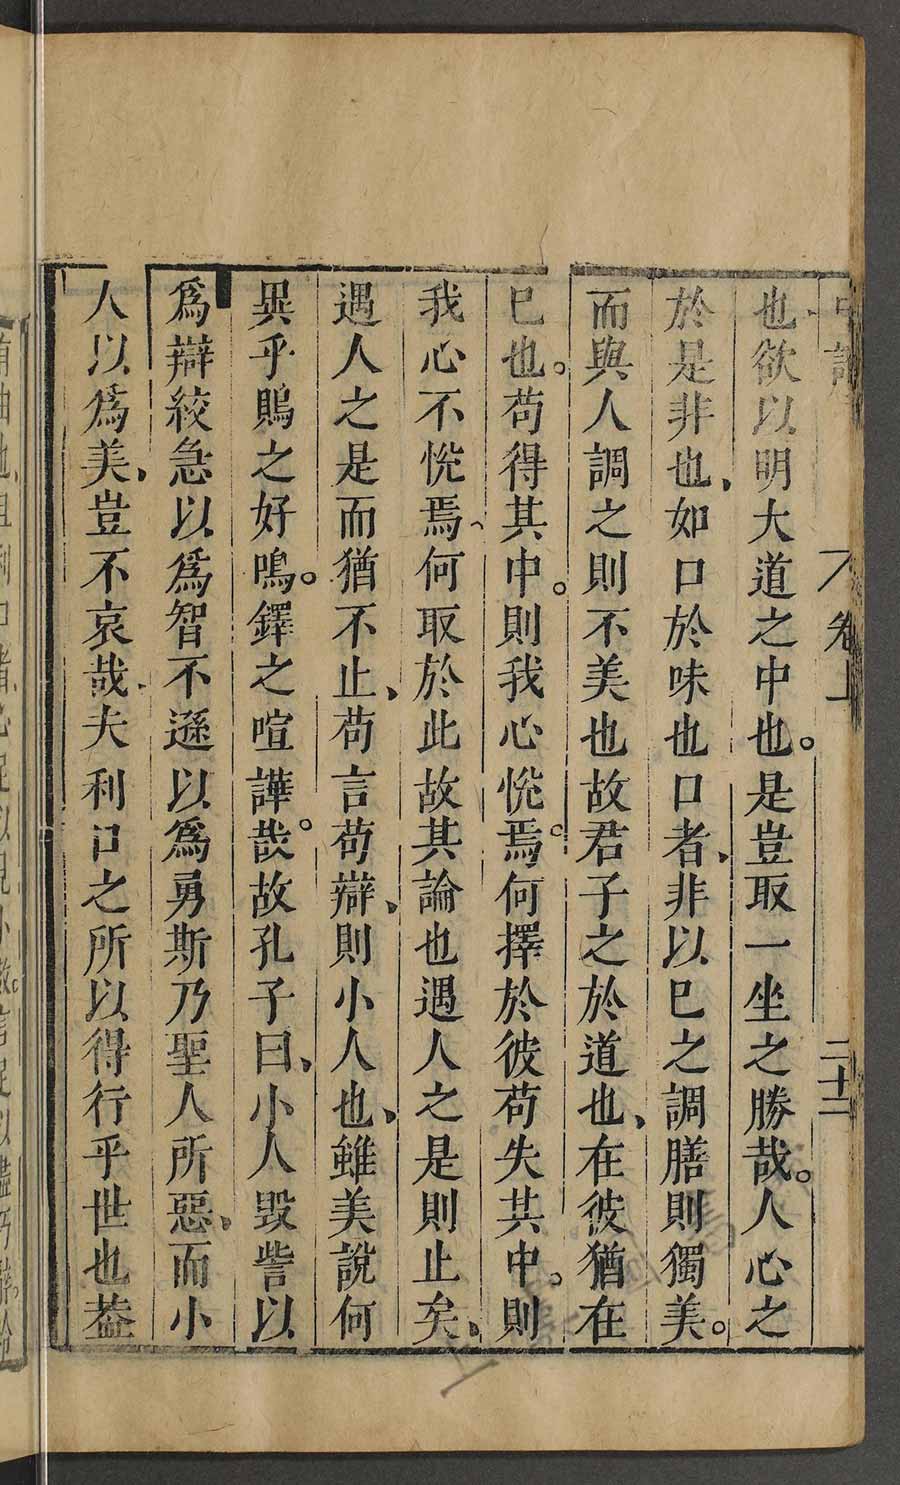 中論 卷上 二十二
也欲以明大道之中也。是豈取一坐之勝哉。人心之
於是非也、如口於味也口者、非以巳之調膳則獨美。
而與人調之則不美也故君子之於道也、在彼猶在
巳也。苟得其中。則我心悅焉。何擇於彼苟失其中。則
我心不悅焉、何取於此故其論也遇人之是則止矣、
遇人之是而猶不止、苟言苟辯、則小人也、雖美說何
異乎鵙之好鳴。鐸之喧譁哉。故孔子曰、小人毀訾以
爲辯絞急以爲智不遜以爲勇斯乃聖人所惡、而小
人以爲美、豈不哀哉、夫利口之所以得行乎世也葢